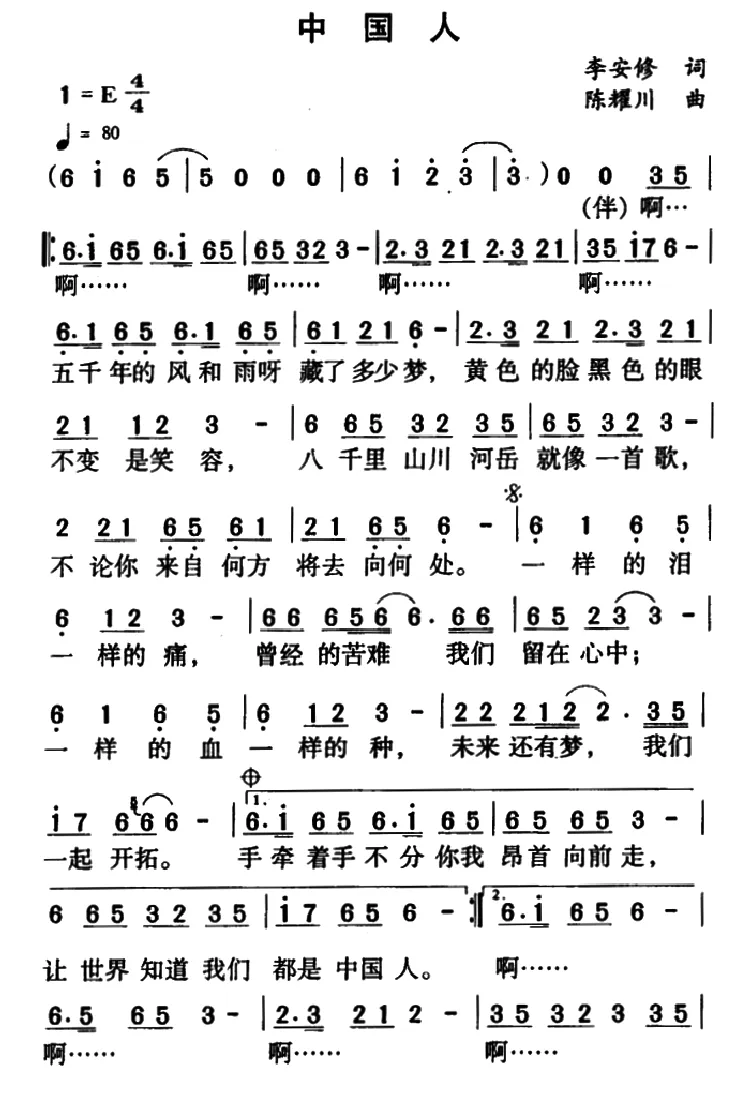 中国人
李安修 词
1=E 4/4
陈耀川 曲
♩= 80
(6 i 6 5 | 5 0 0 0 | 6 i 2 3 | 3 · ) 0 0 3 5 |
(伴) 啊…
‖: 6·i 65 6·i 65 | 65 32 3 - | 2·3 21 2·3 21 | 35 i7 6 - |
啊…… 啊…… 啊…… 啊……
6·1 65 6·1 65 | 61 21 6 - | 2·3 21 2·3 21 |
五千年的风和雨呀 藏了多少梦， 黄色的脸黑色的眼
21 12 3 - | 6 65 32 35 | 65 32 3 - |
不变是笑容， 八千里山川河岳就像一首歌，
2 21 65 61 | 21 65 6 - | 6 1 6 5 |
不论你来自何方 将去向何处。 一样的泪
6 12 3 - | 66 656 6· 66 | 65 23 3 - |
一样的痛， 曾经的苦难 我们留在心中；
6 1 6 5 | 6 12 3 - | 22 212 2· 35 |
一样的血一样的种， 未来还有梦， 我们
i7 666 - | 1. 6·i 65 6·i 65 | 65 65 3 - |
一起开拓。 手牵着手不分你我 昂首向前走，
6 65 32 35 | i7 65 6 - :‖ 2. 6·i 65 6 - |
让世界知道我们都是中国人。 啊……
6·5 65 3 - | 2·3 21 2 - | 35 32 3 35 |
啊…… 啊…… 啊……